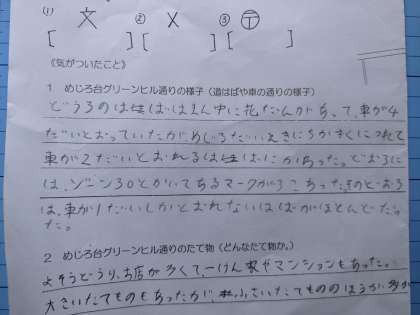 (1) 文 (2) X (3) 〶
[ ] [ ] [ ]
《気がついたこと》
1 めじろ台グリーンヒル通りの様子（道はばや車の通りの様子）
どうろのはばはまん中に花だんがあって、車が4
だいとおっていたがめじろだいえきにちかずくにつれて
車が2だいとおれるはばにかわった。どおろに
は、ゾーン30とかいてあるマークが3こあったそのどおろ
は、車が1だいしかとおれないはばがほとんどだっ
た。
2 めじろ台グリーンヒル通りのたて物（どんなたて物か。）
よそうどうり、お店が多くて一けん家やマンションもあった。
大きいたてものもあったが、小さいたてもののほうが多か